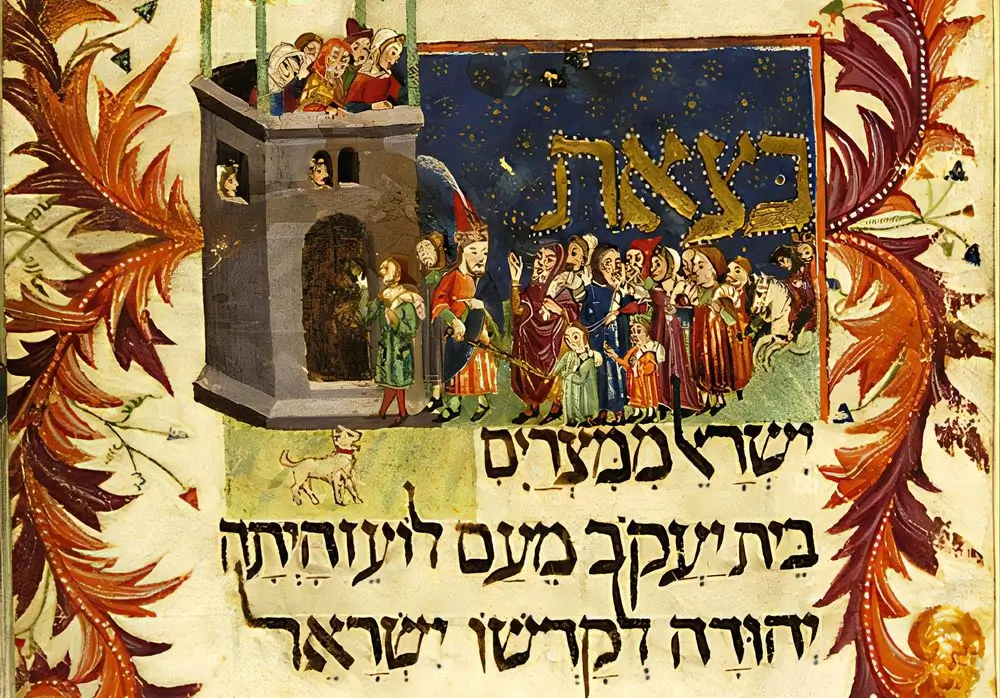 בצאת
יִשְׂרָאֵל מִמִּצְרַיִם
בֵּית יַעֲקֹב מֵעַם לוֹעֵז הָיְתָה
יְהוּדָה לְקָדְשׁוֹ יִשְׂרָאֵל